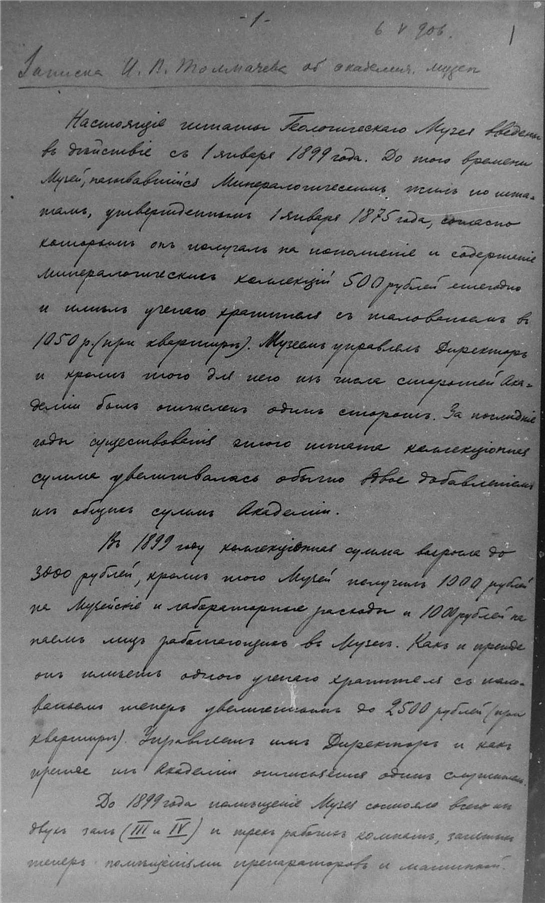 -1-
6 V 906.
1
Записка И. П. Толмачева об академич. музее
Настоящіе штаты Геологическаго Музея введены
въ дѣйствіе съ 1 января 1899 года. До того времени
Музей, называвшійся Минералогическимъ жилъ по шта-
тамъ, утвержденнымъ 1 января 1875 года, согласно
которымъ онъ получалъ на пополненіе и содержаніе
минералогическихъ коллекцій 500 рублей ежегодно
и имѣлъ ученаго хранителя съ жалованьемъ въ
1050 р. (при квартирѣ). Музеемъ управлялъ Директоръ
и кромѣ того для него изъ числа сторожей Ака-
деміи былъ отчисленъ одинъ сторожъ. За послѣдніе
годы существованія этого штата коллекціонная
сумма увеличивалась обычно вдвое добавленіемъ
изъ общихъ суммъ Академіи.
Въ 1899 году коллекціонная сумма возросла до
3000 рублей, кромѣ того Музей получилъ 1000 рублей
на Музейскіе и лабораторные расходы и 1000 рублей на
наемъ лицъ работающихъ въ Музеѣ. Какъ и прежде
онъ имѣетъ одного ученаго хранителя съ жало-
ваньемъ теперь увеличеннымъ до 2500 рублей (при
квартирѣ). Управляетъ имъ Директоръ и какъ
прежде изъ Академіи отчисляется одинъ служитель.
До 1899 года помѣщеніе Музея состояло всего изъ
двухъ залъ (III и IV) и трехъ рабочихъ комнатъ, занятыхъ
теперь помѣщеніями препараторовъ и машинной.